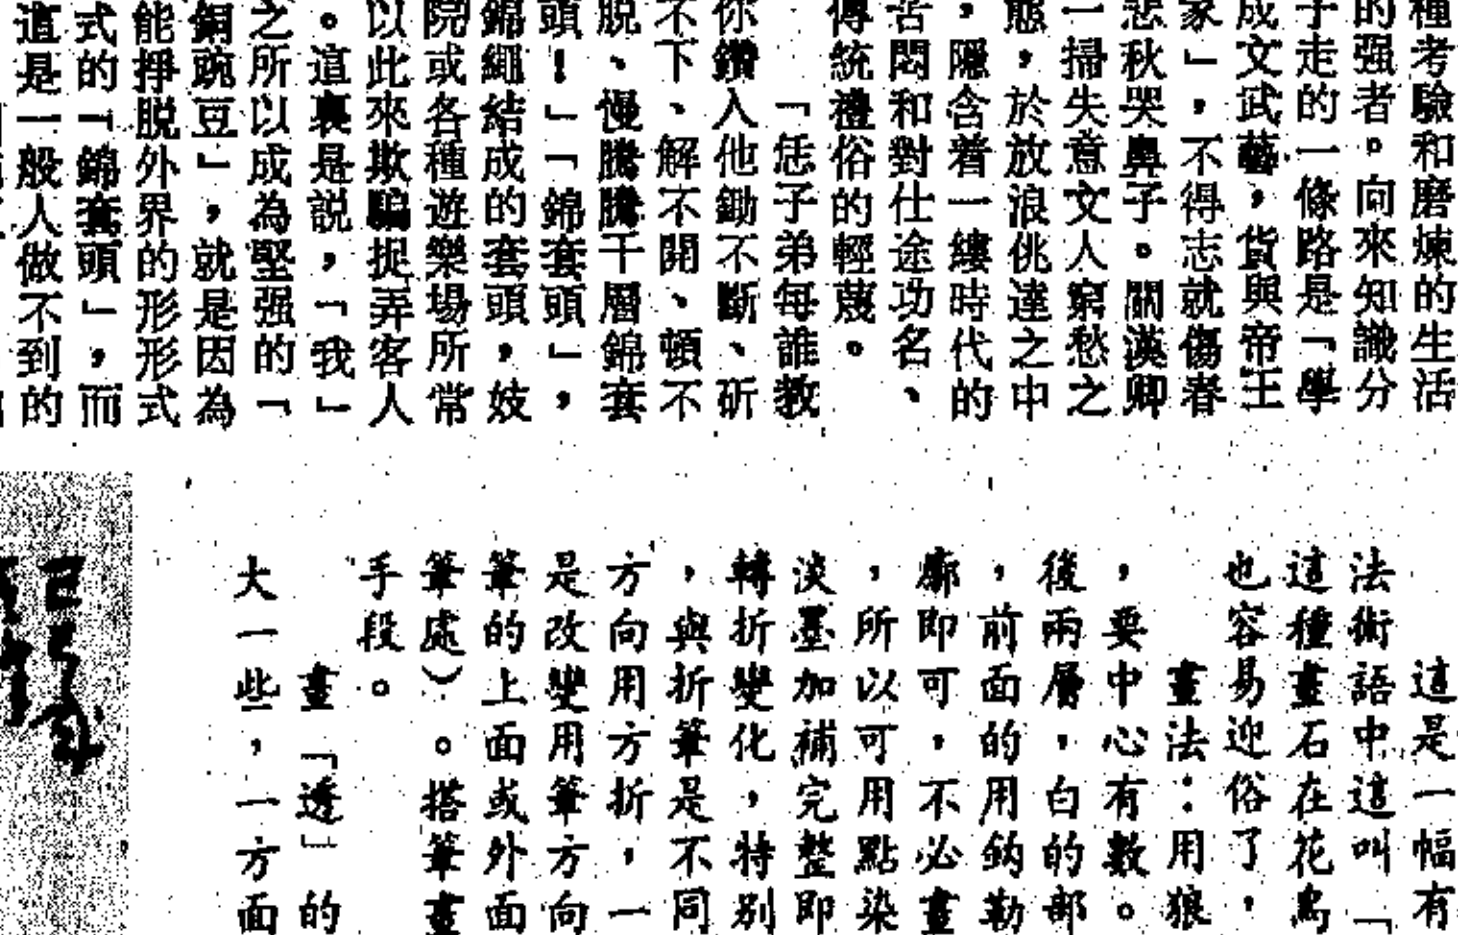 種考驗和磨煉的生活
的强者。向來知識分
子走的一條路是「學
成文武藝，貨與帝王
家」，不得志就傷春
悲秋哭鼻子。關漢卿
一掃失意文人窮愁之
態，於放浪佻達之中
，隱含着一縷時代的
苦悶和對仕途功名、
傳統禮俗的輕蔑。
「恁子弟每誰教
你鑽入他鋤不斷、斫
不下、解不開、頓不
脱、慢騰騰千層錦套
頭！」「錦套頭」，
錦繩結成的套頭，妓
院或各種遊樂場所常
以此來欺騙捉弄客人
。這裏是説，「我」
之所以成為堅强的「
銅豌豆」，就是因為
能掙脱外界的形形式
式的「錦套頭」，而
這是一般人做不到的
這是一幅有
法術語中這叫「
這種畫石在花鳥
也容易迎俗了，
畫法：用狼
，要中心有數。
後兩層，白的部
，前面的用鈎勒
廓即可，不必畫
，所以可用點染
淡墨加補完整即
轉折變化，特别
，與折筆是不同
方向用方折，一
是改變用筆方向
筆的上面或外面
筆處）。搭筆畫
手段。
畫「透」的
大一些，一方面